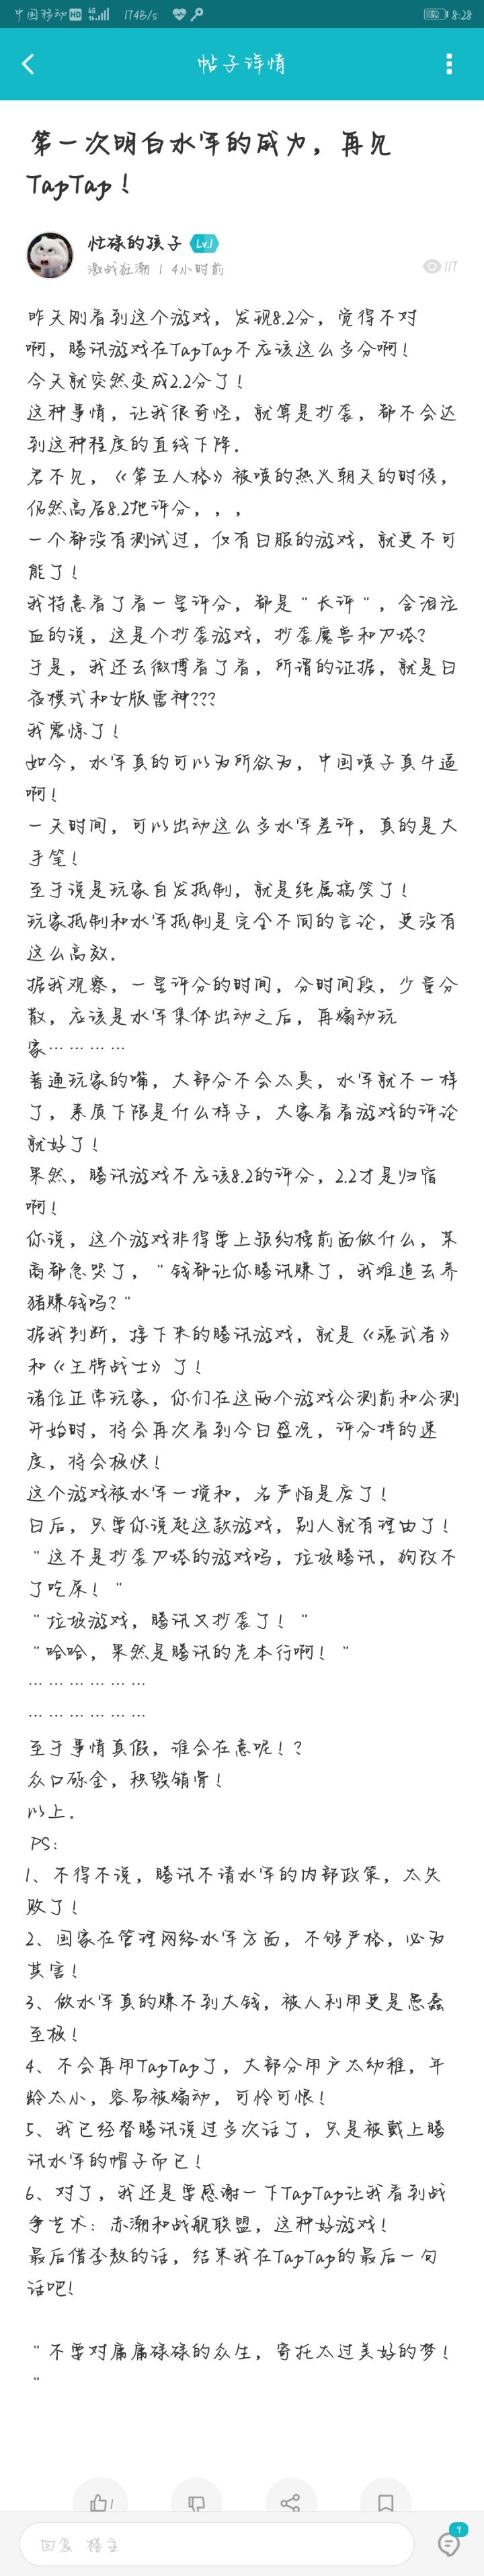 中国移动 HD 4G 174B/s 8:28
帖子详情
第一次明白水军的威力，再见
TapTap！
忙碌的孩子 Lv.1
激战狂潮 | 4小时前 117
昨天刚看到这个游戏，发现8.2分，觉得不对
啊，腾讯游戏在TapTap不应该这么多分啊！
今天就突然变成2.2分了！
这种事情，让我很奇怪，就算是抄袭，都不会达
到这种程度的直线下降．
君不见，《第五人格》被喷的热火朝天的时候，
仍然高居8.2地评分，，，
一个都没有测试过，仅有日服的游戏，就更不可
能了！
我特意看了看一星评分，都是＂长评＂，含泪泣
血的说，这是个抄袭游戏，抄袭魔兽和刀塔？
于是，我还去微博看了看，所谓的证据，就是日
夜模式和女版雷神???
我震惊了！
如今，水军真的可以为所欲为，中国喷子真牛逼
啊！
一天时间，可以出动这么多水军差评，真的是大
手笔！
至于说是玩家自发抵制，就是纯属搞笑了！
玩家抵制和水军抵制是完全不同的言论，更没有
这么高效．
据我观察，一星评分的时间，分时间段，少量分
散，应该是水军集体出动之后，再煽动玩
家…………
普通玩家的嘴，大部分不会太臭，水军就不一样
了，素质下限是什么样子，大家看看游戏的评论
就好了！
果然，腾讯游戏不应该8.2的评分，2.2才是归宿
啊！
你说，这个游戏非得要上预约榜前面做什么，某
商都急哭了，＂钱都让你腾讯赚了，我难道去养
猪赚钱吗？＂
据我判断，接下来的腾讯游戏，就是《魂武者》
和《王牌战士》了！
诸位正常玩家，你们在这两个游戏公测前和公测
开始时，将会再次看到今日盛况，评分掉的速
度，将会极快！
这个游戏被水军一搅和，名声怕是废了！
日后，只要你说起这款游戏，别人就有理由了！
＂这不是抄袭刀塔的游戏吗，垃圾腾讯，狗改不
了吃屎！＂
＂垃圾游戏，腾讯又抄袭了！＂
＂哈哈，果然是腾讯的老本行啊！＂
………………
………………
至于事情真假，谁会在意呢！？
众口砾金，积毁销骨！
以上．
PS：
1、不得不说，腾讯不请水军的内部政策，太失
败了！
2、国家在管理网络水军方面，不够严格，必为
其害！
3、做水军真的赚不到大钱，被人利用更是愚蠢
至极！
4、不会再用TapTap了，大部分用户太幼稚，年
龄太小，容易被煽动，可怜可恨！
5、我已经替腾讯说过多次话了，只是被戴上腾
讯水军的帽子而已！
6、对了，我还是要感谢一下TapTap让我看到战
争艺术：赤潮和战舰联盟，这种好游戏！
最后借李敖的话，结束我在TapTap的最后一句
话吧！
＂不要对庸庸碌碌的众生，寄托太过美好的梦！
＂
1
回复 楼主 9